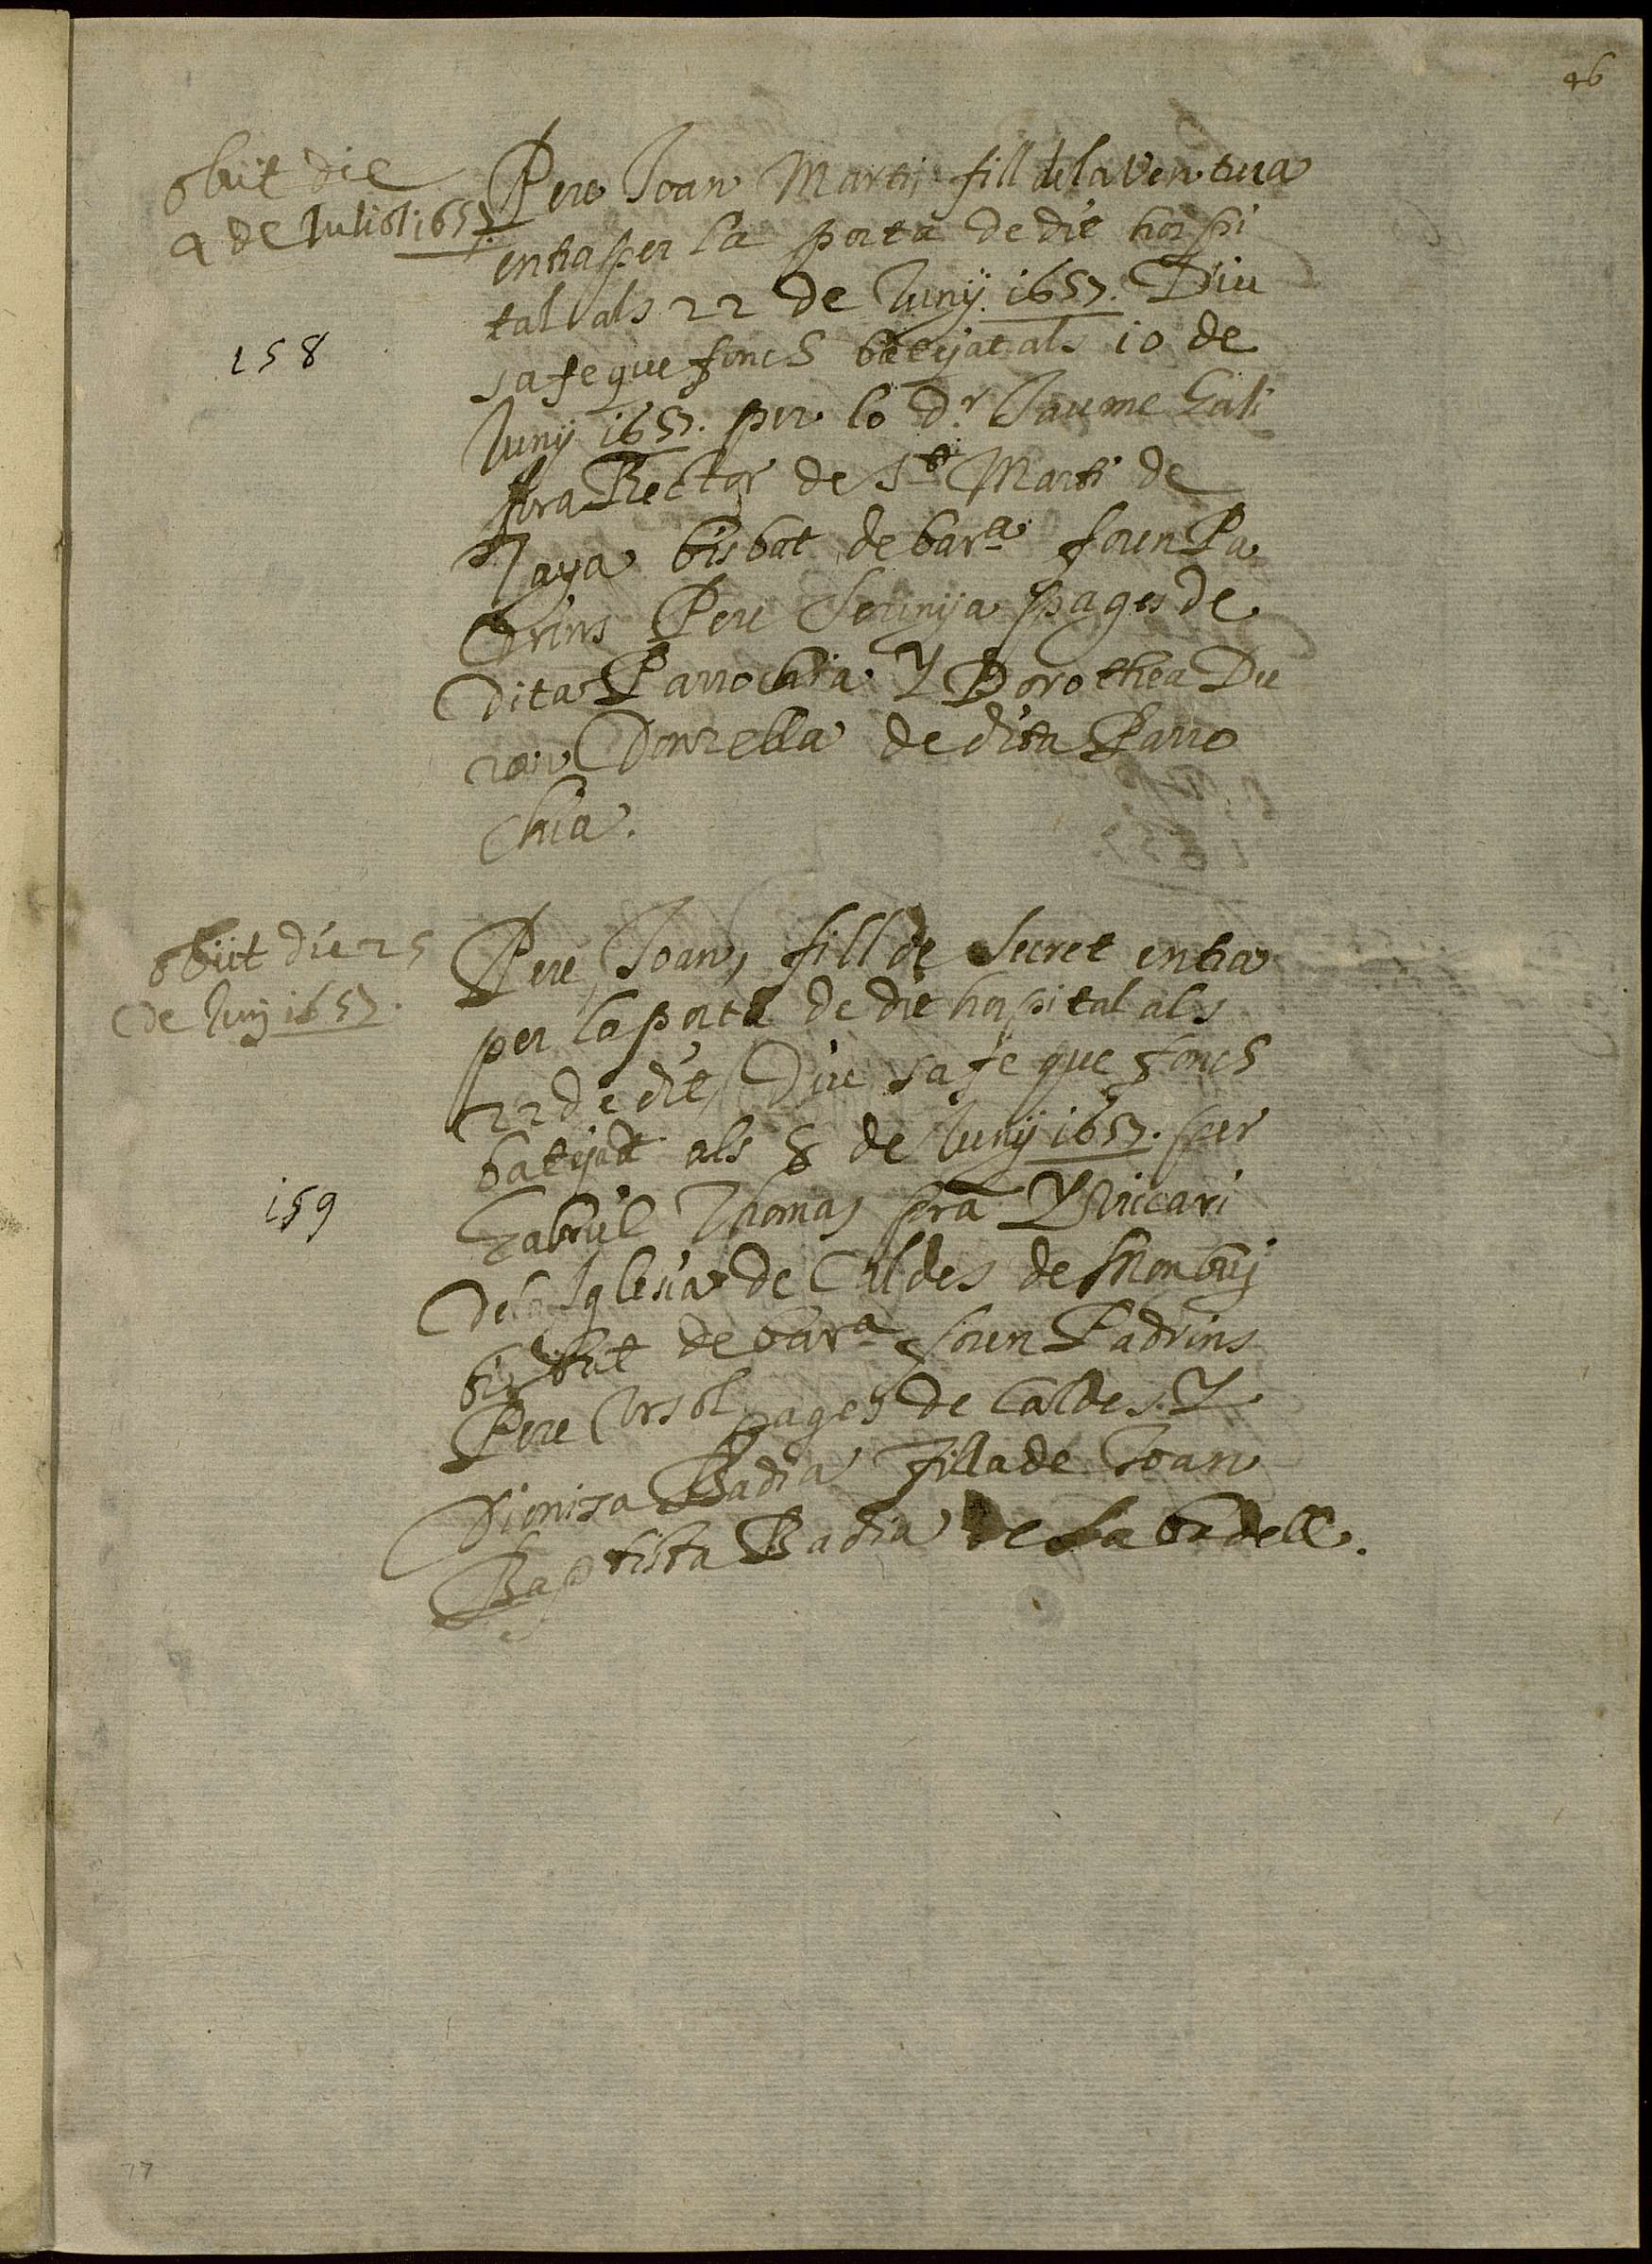 46
obiit die
4 de Juliol 1657
158
Pere Joan Marti fill de la Ventura
entra per la porta de dit hospi
tal als 22 de Juny 1657. Diu
sa fe que fonch batejat als 10 de
Juny 1657. per lo Dr Jaume Gali
pra Rector de St Marti de
bisbat de barª foren Pa
drins Pere pages de
dita Parrochia Y Dorothea Du
ran Donzella de dita Parro
chia.
obiit die 25
de Juny 1657.
159
Pere Joan, fill de Secret entra
per la porta de dit hospital als
22 de dit, Diu sa fe que fonch
batejat als 8 de Juny 1657. per
Gabriel Thomas pra Y Vicari
de la Iglesia de Caldes de Monbuj
bisbat de barª foren Padrins
Pere Ursol pages de Caldes. Y
Dionisa Badia filla de Joan
Baptista Badia de Sabadell.
77